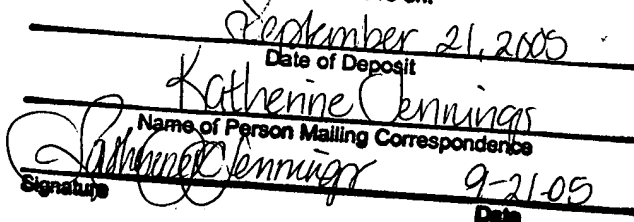 September 21, 2005
Date of Deposit
Katherine Jennings
Name of Person Mailing Correspondence
Katherine Jennings 9-21-05
Signature Date